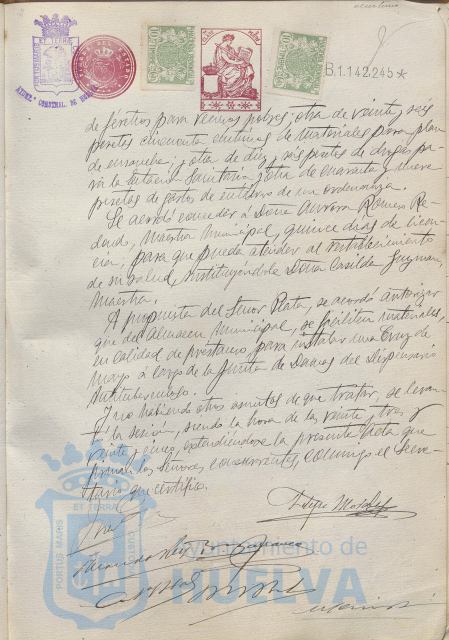 B.1.142.245*
de féretros para vecinos pobres; otra de veinte y seis
pesetas cincuenta céntimos de materiales para plan
de ensanche; otra de diez y seis pesetas de drogas pa-
ra la estación Sanitaria y otra de cuarenta y nueve
pesetas de gastos de entierro de un ordenanza.
Se acordó conceder á Doña Aurora Romero Re-
dondo, Maestra Municipal, quince días de licen-
cia, para que pueda atender al restablecimiento
de su salud, sustituyéndole Doña Casilda Guzman,
Maestra.
A propuesta del Señor Plata, se acordó autorizar
que del Almacen Municipal, se faciliten materiales,
en calidad de préstamo, para instalar una Cruz de
Mayo á cargo de la Junta de Damas del Dispensario
Antituberculoso.
Y no habiendo otros asuntos de que tratar, se levan-
tó la sesión, siendo la hora de las veinte y tres y
veinte y cinco, extendiéndose la presente Acta que
firman los Señores concurrentes, conmigo el Secre-
tario que certifico.
ET TERRA
PORTUS MARIS
CUSTODIA
Ayuntamiento de
HUELVA